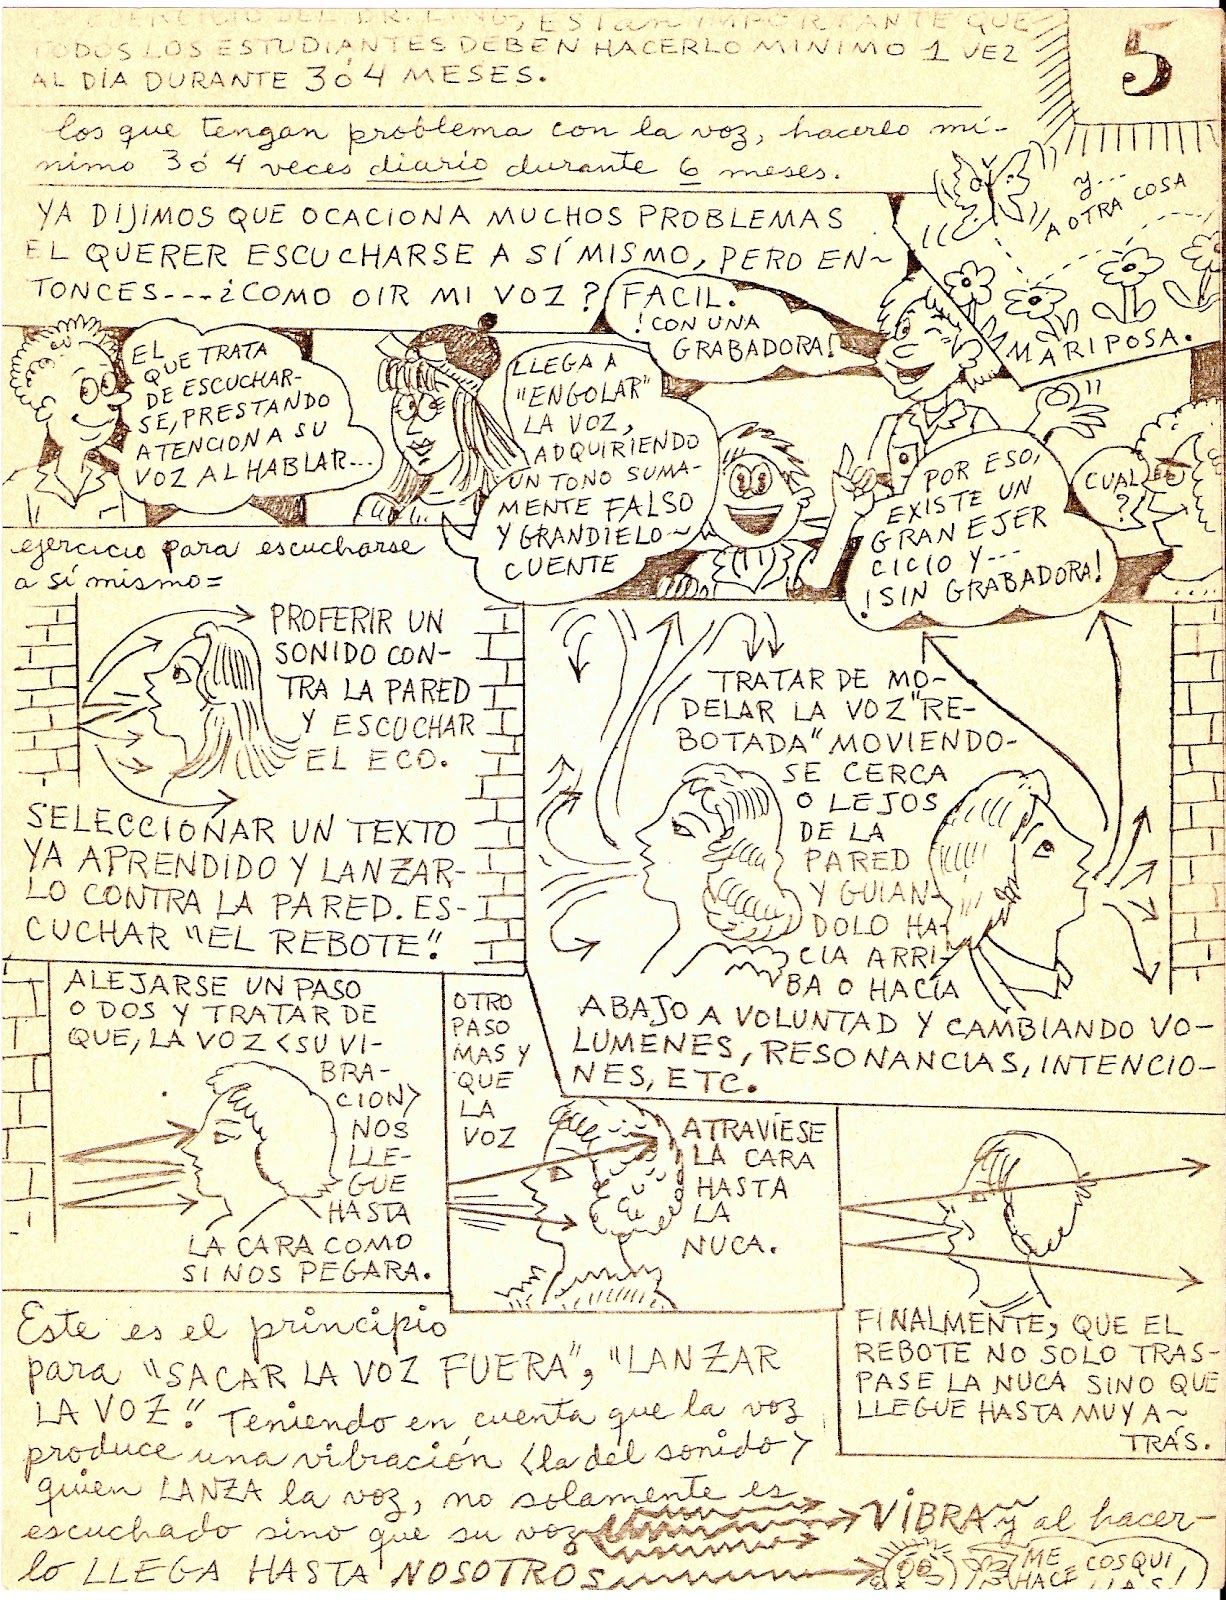 EJERCICIO DEL DR. LANG, ES TAN IMPORTANTE QUE
TODOS LOS ESTUDIANTES DEBEN HACERLO MINIMO 1 VEZ
AL DÍA DURANTE 3 Ó 4 MESES.
5
los que tengan problema con la voz, hacerlo mí-
nimo 3 ó 4 veces diario durante 6 meses.
y...
A OTRA COSA
MARIPOSA.
YA DIJIMOS QUE OCACIONA MUCHOS PROBLEMAS
EL QUERER ESCUCHARSE A SÍ MISMO, PERO EN~
TONCES---¿COMO OIR MI VOZ?
FACIL.
!CON UNA
GRABADORA!
EL
QUE TRATA
DE ESCUCHAR-
SE, PRESTANDO
ATENCION A SU
VOZ AL HABLAR...
LLEGA A
"ENGOLAR"
LA VOZ,
ADQUIRIENDO
UN TONO SUMA-
MENTE FALSO
Y GRANDIELO~
CUENTE
POR ESO,
EXISTE UN
GRAN EJER
CICIO Y---
!SIN GRABADORA!
CUAL
?
ejercicio para escucharse
a sí mismo=
PROFERIR UN
SONIDO CON-
TRA LA PARED
Y ESCUCHAR
EL ECO.
SELECCIONAR UN TEXTO
YA APRENDIDO Y LANZAR-
LO CONTRA LA PARED. ES-
CUCHAR "EL REBOTE".
TRATAR DE MO-
DELAR LA VOZ "RE-
BOTADA" MOVIENDO-
SE CERCA
O LEJOS
DE LA
PARED
Y GUIAN-
DOLO HA-
CIA ARRI-
BA O HACÍA
ABAJO A VOLUNTAD Y CAMBIANDO VO-
LUMENES, RESONANCIAS, INTENCIO-
NES, ETC.
ALEJARSE UN PASO
O DOS Y TRATAR DE
QUE, LA VOZ <SU VI-
BRA-
CION>
NOS
LLE-
GUE
HASTA
LA CARA COMO
SI NOS PEGARA.
OTRO
PASO
MAS Y
QUE
LA
VOZ
ATRAVÍESE
LA CARA
HASTA
LA
NUCA.
FINALMENTE, QUE EL
REBOTE NO SOLO TRAS-
PASE LA NUCA SINO QUE
LLEGUE HASTA MUY A~
TRÁS.
Este es el principio
para "SACAR LA VOZ FUERA", "LANZAR
LA VOZ". Teniendo en cuenta que la voz
produce una vibración <la del sonido>
quien LANZA la voz, no solamente es
escuchado sino que su voz VIBRA y al hacer-
lo LLEGA HASTA NOSOTROS
ME
HACE
COSQUI
LLAS!